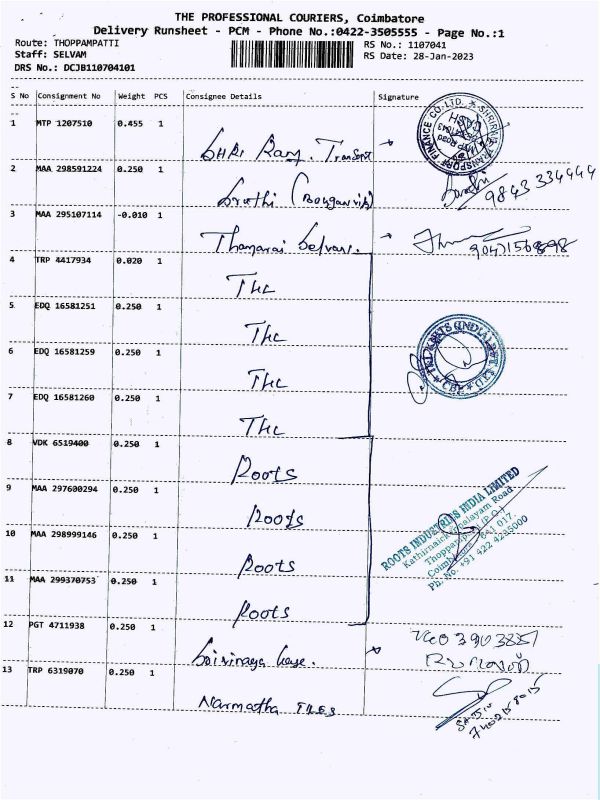 THE PROFESSIONAL COURIERS, Coimbatore
Delivery Runsheet - PCM - Phone No.:0422-3505555 - Page No.:1
Route: THOPPAMPATTI
RS No.: 1107041
Staff: SELVAM
RS Date: 28-Jan-2023
DRS No.: DCJB110704101
S No Consignment No Weight PCS Consignee Details Signature
1 MTP 1207510 0.455 1 SHRI Ram. Transport
SHRIRAM TRANSPORT FINANCE CO. LTD.
CASH
MTP Road
2 MAA 298591224 0.250 1 Sruthi
9843334444
3 MAA 295107114 -0.010 1 Thamarai Selvan.
4 TRP 4417934 0.020 1 THC
5 EDQ 16581251 0.250 1 THC
6 EDQ 16581259 0.250 1 THC
7 EDQ 16581260 0.250 1 THC
8 VDK 6519400 0.250 1 Roots
9 MAA 297600294 0.250 1 Roots
10 MAA 298999146 0.250 1 Roots
11 MAA 299370753 0.250 1 Roots
ROOTS INDUSTRIES INDIA LIMITED
Kathirnaickenpalayam Road
Thoppampatti (P.O.)
Coimbatore - 641 017.
Ph. No. +91 422 4235000
12 PGT 4711938 0.250 1
13 TRP 6319070 0.250 1 Narmatha TILES